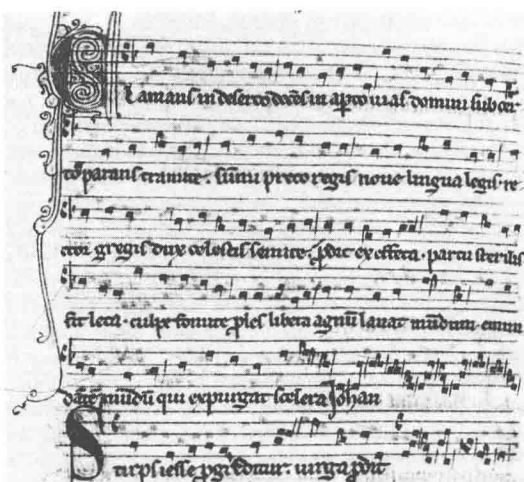 Clamans in deserto docēs in aꝑto uias domini sub cer
to parans tramite. sūmi preco regis noue lingua legis. re
ctor gregis dux celestis semite. ꝓdit ex effeta. partu sterilis
fit leta. culpe fomite ꝓles libera agnū lauat mūdum emun
dans mūdū qui expurgat scelera Johan
Stirps iesse ꝓgreditur. uirga ꝓdit